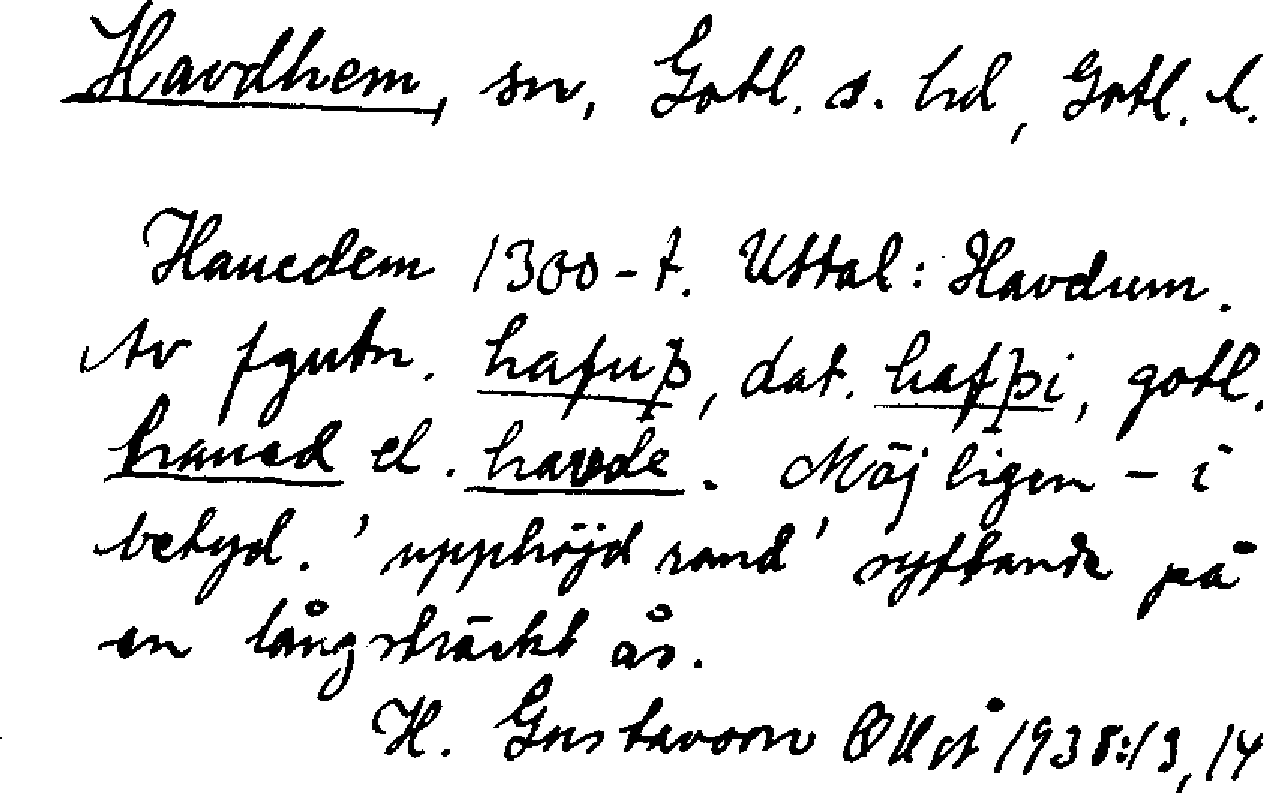 Havdhem, sn, Gotl. s. hd, Gotl. l.
Hauedem 1300-t. Uttal: Havdum.
Av fgutn. hafuþ, dat. hafþi, gotl.
haued el. havde. Möjligen - i
betyd. 'upphöjd rand' syftande på
en långsträckt ås.
H. Gustavson 1938:13, 14